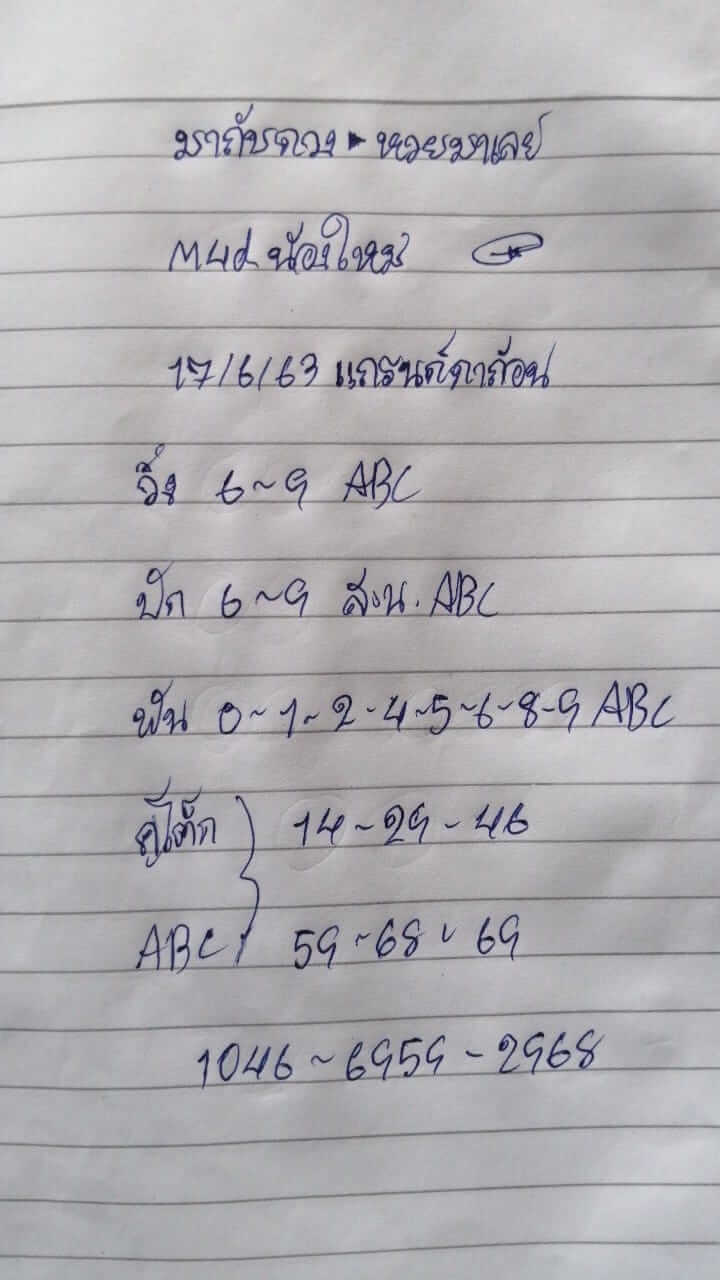 มากับดวง ▸ หวยมาเลย์
M4d น้องใหม่
17/6/63 แกรนด์ดาก้อน
วิ่ง 6~9 ABC
ปัก 6~9 ส.น. ABC
ฟัน 0~1~2-4~5~6-8-9 ABC
คู่โต๊ด } 14~29-46
ABC 59~68~69
1046~6959-2968